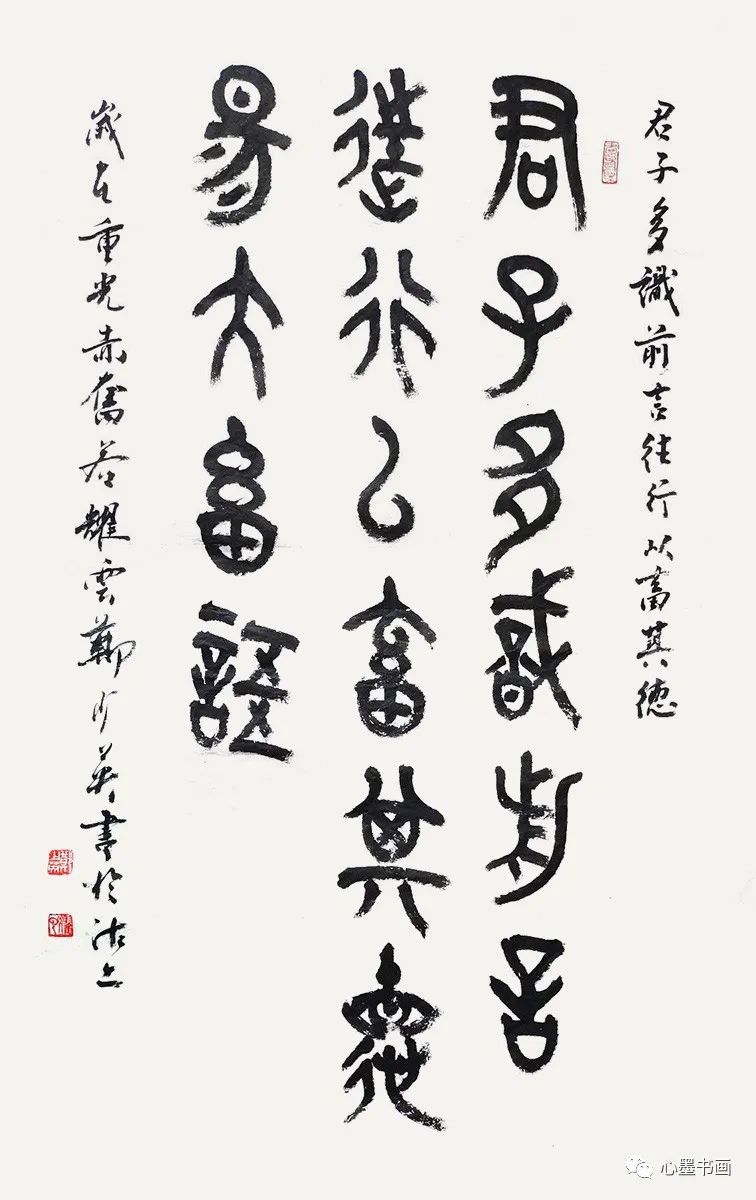 君子多識前言往行以畜其德
君子多識前言
往行以畜其德
易大畜語
歲在重光赤奮若耀雲鄭少英書於沽上
心墨书画